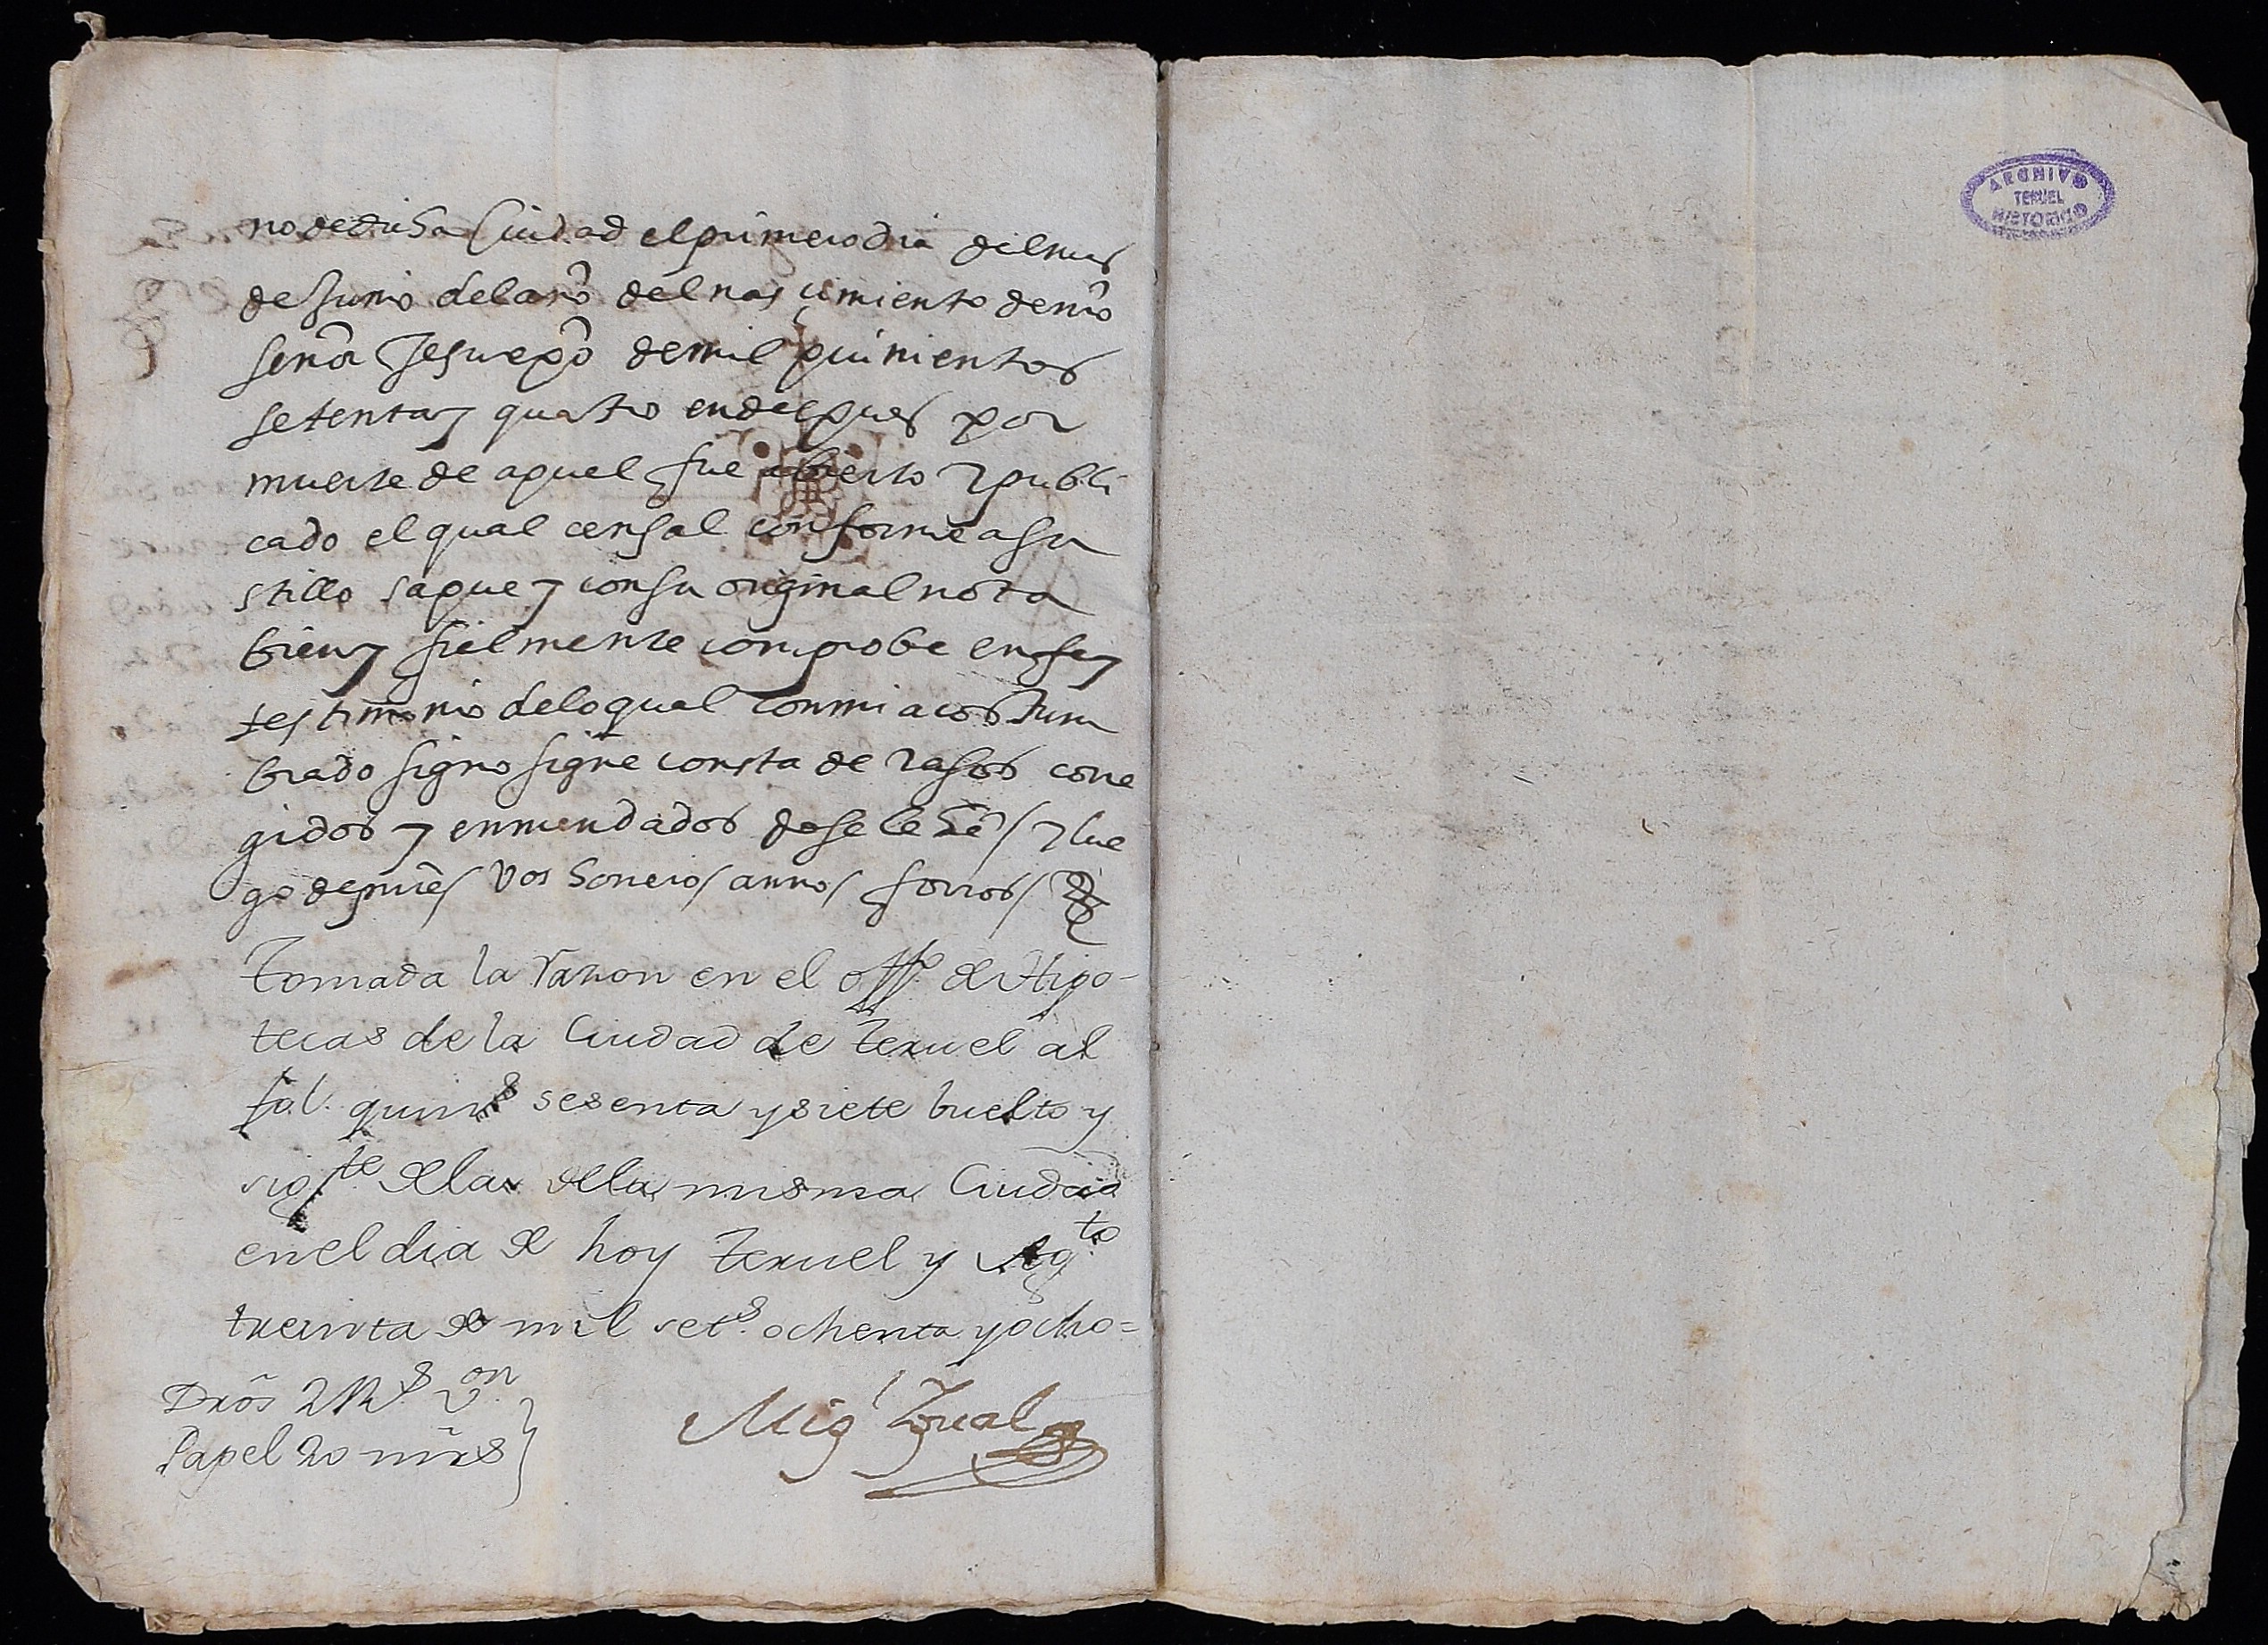 no de dicha Ciudad el primero dia del mes
de Junio del año del nascimiento de nro
señor Jesu xpo de mil quinientos
setenta y quatro en despues por
muerte de aquel fue abierto y publi
cado el qual censal conforme a su
stillo saque y con su original nota
bien y fielmente comprobe en fe y
testimonio de lo qual con mi acostum
brado signo signe consta de rasos corre
gidos y enmendados se le y lue
go despues vos annos forros
Tomada la razon en el offo de Hipo-
tecas de la Ciudad de Teruel al
fol. quins sesenta y siete buelto y
sigte de la de la misma Ciudad
en el dia de hoy Teruel y Agto
treinta de mil sets ochenta y ocho=
Dros 2 Rs von
Papel 20 mrs
Migl
ARCHIVO
TERUEL
HISTORICO